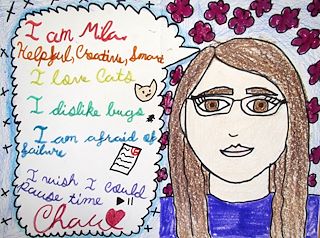 I am Mila
Helpful, Creative, Smart
I love Cats
I dislike bugs
I am afraid of
failure
I wish I could
pause time